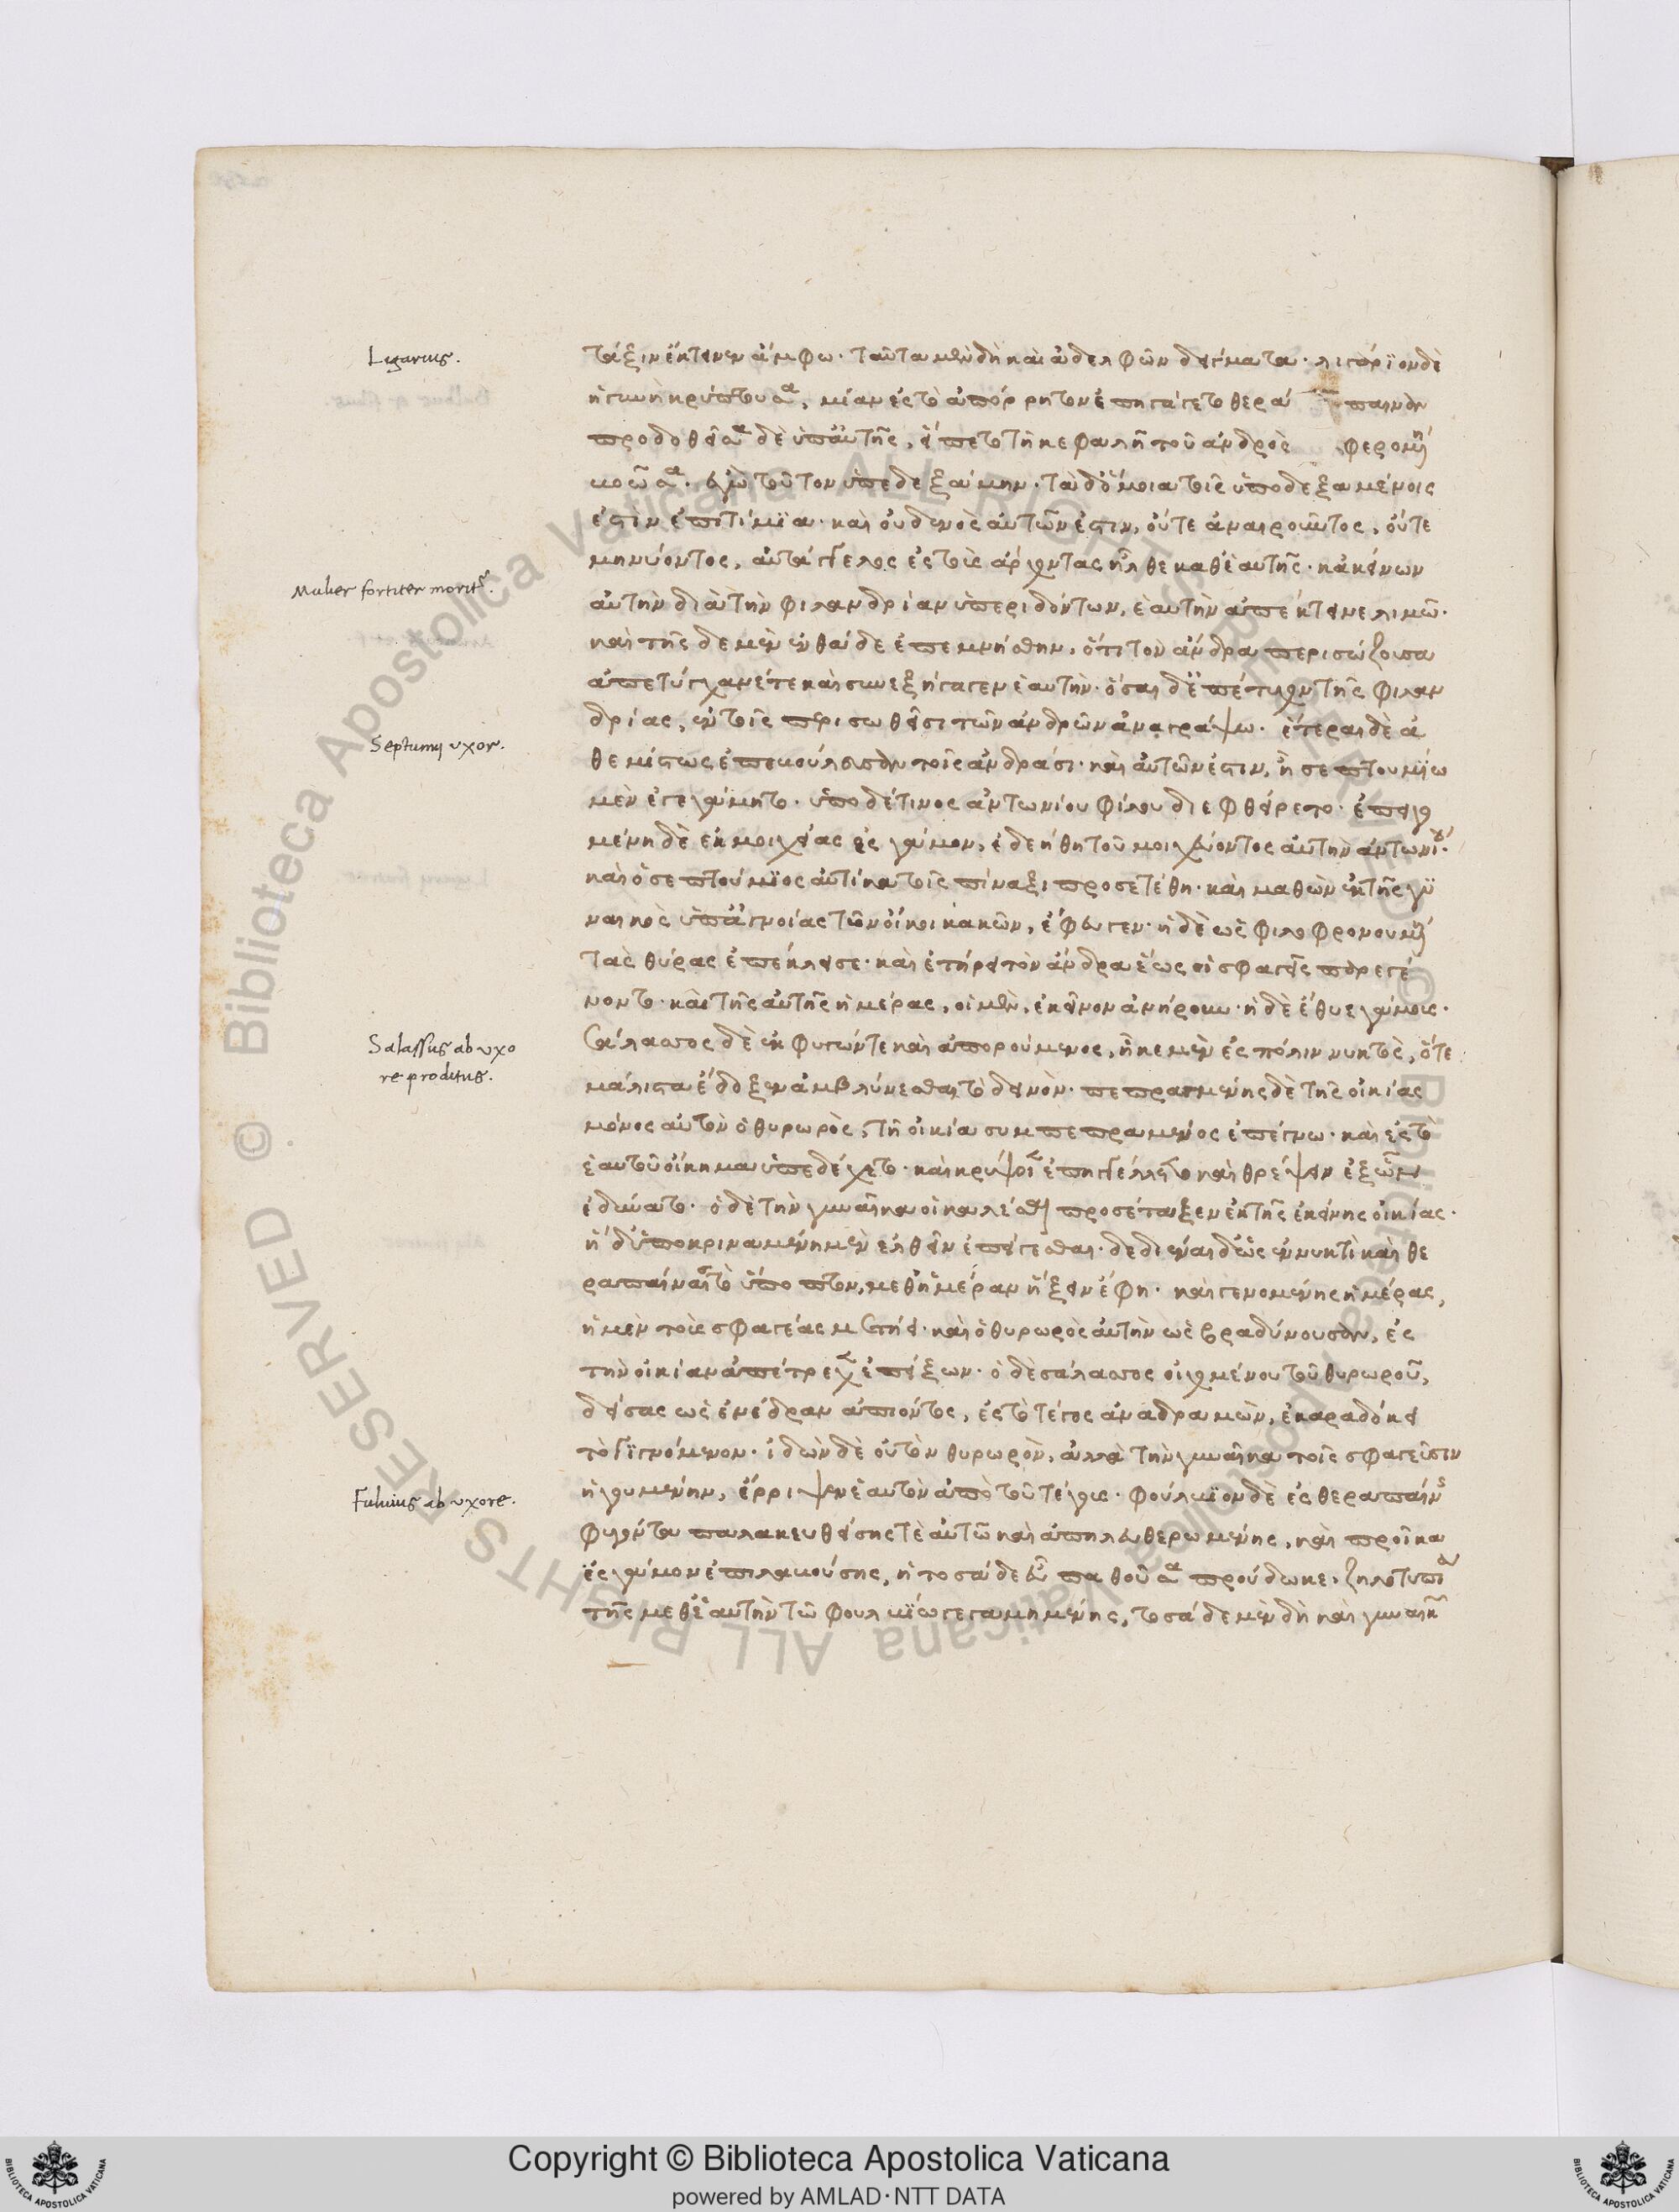 Ligarius.
τάξιν ἔκτεινεν ἄμφω· ταῦτα μὲν δὴ καὶ ἀδελφῶν δείγματα· λιγάριον δὲ
ἡ γυνὴ κρύπτουσα, μίαν ἐς τὸ ἀπόρρητον ἐπηγάγετο θερά παιναν
προδοθεῖσα δὲ ὑπ' αὐτῆς, εἵπετο τῇ κεφαλῇ τοῦ ἀνδρὸς φερομένη
βοῶσα· ἐγὼ τοῦτον ὑπεδεξάμην· τὰ δ' ὅμοια τοῖς ὑποδεξαμένοις
ἐστὶν ἐπιτίμια· καὶ οὐδενὸς αὐτῶν ἐστιν, οὔτε ἀναιροῦντος, οὔτε
μηνύοντος, αὐτάγγελος ἐς τοὺς ἄρχοντας ἦλθε καθ' ἑαυτῆς· κἀκείνων
Mulier fortiter moritur.
αὐτὴν διὰ τὴν φιλανδρίαν ὑπεριδόντων, ἑαυτὴν ἀπέκτεινε λιμῷ·
καὶ τῆσδε μὲν ἐνθάδε ἐπεμνήσθην, ὅτι τὸν ἄνδρα περισώζουσα
ἀπετύγχανέ τε καὶ συνεξήγαγεν ἑαυτήν· ὅσαι δ' ἐπέτυχον τῆς φιλαν
δρίας, ἐν τοῖς περισωθεῖσι τῶν ἀνδρῶν ἀναγράψω· ἕτεραι δὲ ἀ
Septumij uxor.
θεμίστως ἐπεβούλευσαν τοῖς ἀνδράσι· καὶ αὐτῶν ἐστιν, ἣ σεπτουμίω
μὲν ἐγεγάμητο· ὑπὸ δέ τινος ἀντωνίου φίλου διεφθείρετο· ἐπειγο
μένη δὲ ἐκ μοιχείας ἐς γάμον, ἐδεήθη τοῦ μοιχεύοντος αὐτὴν ἀντωνίου·
καὶ ὁ σεπτούμιος αὐτίκα τοῖς πίναξι προσετέθη· καὶ μαθὼν ἐκ τῆς γυ
ναικὸς ὑπ' ἀγνοίας τῶν οἴκοι κακῶν, ἔφευγεν· ἡ δὲ ὡς φιλοφρονουμένη
τὰς θύρας ἐπέκλεισε· καὶ ἐτήρει τὸν ἄνδρα ἕως οἱ σφαγεῖς παρεγέ
νοντο· καὶ τῆς αὐτῆς ἡμέρας, οἱ μὲν, ἐκεῖνον ἀνήρουν· ἡ δὲ ἔθυε γάμους·
Salassus ab uxo
re proditus.
Σάλασσος δὲ ἐκφυγών τε καὶ ἀπορούμενος, ἧκε μὲν ἐς πόλιν νυκτὸς, ὅτε
μάλιστα ἔδοξεν ἀμβλύνεσθαι τὸ δεινόν· πεπραγμένης δὲ τῆς οἰκίας
μόνος αὐτὸν ὁ θυρωρὸς, τῇ οἰκία συμπεπραμένος ἐπέγνω· καὶ ἐς τὸ
ἑαυτοῦ οἴκημα ὑπεδέχετο· καὶ κρύψειν ἐπηγγέλλετο καὶ θρέψειν ἐξ ὧν
ἐδύνατο· ὁ δὲ τὴν γυναῖκα οἱ καλέσαι προσέταξεν ἐκ τῆς ἐκείνης οἰκίας·
ἡ δ' ὑποκριναμένη μὲν ἐλθεῖν ἐπείγεσθαι· δεδιέναι δ' ὡς ἐν νυκτὶ καὶ θε
ραπαίνας τὸ ὕποπτον, μεθ' ἡμέραν ἥξειν ἔφη· καὶ γενομένης ἡμέρας,
ἡ μὲν τοὺς σφαγέας μετῄει· καὶ ὁ θυρωρὸς αὐτὴν ὡς βραδύνουσαν, ἐς
τὴν οἰκίαν ἀπέτρεχεν ἐπείξων· ὁ δὲ σάλασσος οἰχομένου τοῦ θυρωροῦ,
δείσας ὡς ἐνέδραν ἀπιόντος, ἐς τὸ τέγος ἀναδραμὼν, ἐκαραδόκει
τὸ γιγνόμενον· ἰδὼν δὲ οὐ τὸν θυρωρὸν, ἀλλὰ τὴν γυναῖκα τοῖς σφαγεῦσιν
Fuluius ab uxore.
ἡγουμένην, ἔρριψεν ἑαυτὸν ἀπὸ τοῦ τέγους· φούλβιον δὲ ἐς θεραπαίνης
φυγόντα παλλακευθείσης τε αὐτῷ καὶ ἀπηλευθερωμένης, καὶ προῖκα
ἐς γάμον ἐπιλαβούσης, ἡ τοσάδε εὖ παθοῦσα προύδωκε· ζηλοτυπίᾳ
τῆς μεθ' ἑαυτὴν τῷ φουλβίῳ γεγαμημένης, τοσάδε μὲν δὴ καὶ γυναικῶν
Copyright © Biblioteca Apostolica Vaticana
powered by AMLAD·NTT DATA